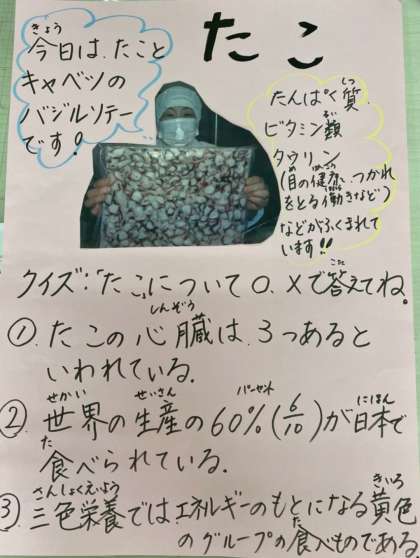 たこ
きょう
今日は、たこと
キャベツの
バジルソテー
です!
たんぱく質
しつ
ビタミン類
るい
タウリン
(目の健康、つかれ
をとる働きなど)
などがふくまれて
います!!
クイズ:「たこ」について○、×で答えてね。
こた
しんぞう
① たこの心臓は、3つあると
いわれている。
せかい せいさん パーセント にほん
② 世界の生産の60%(6/10)が日本で
た
食べられている。
さんしょくえいよう きいろ
③ 三色栄養では、エネルギーのもとになる黄色
た
のグループの食べものである